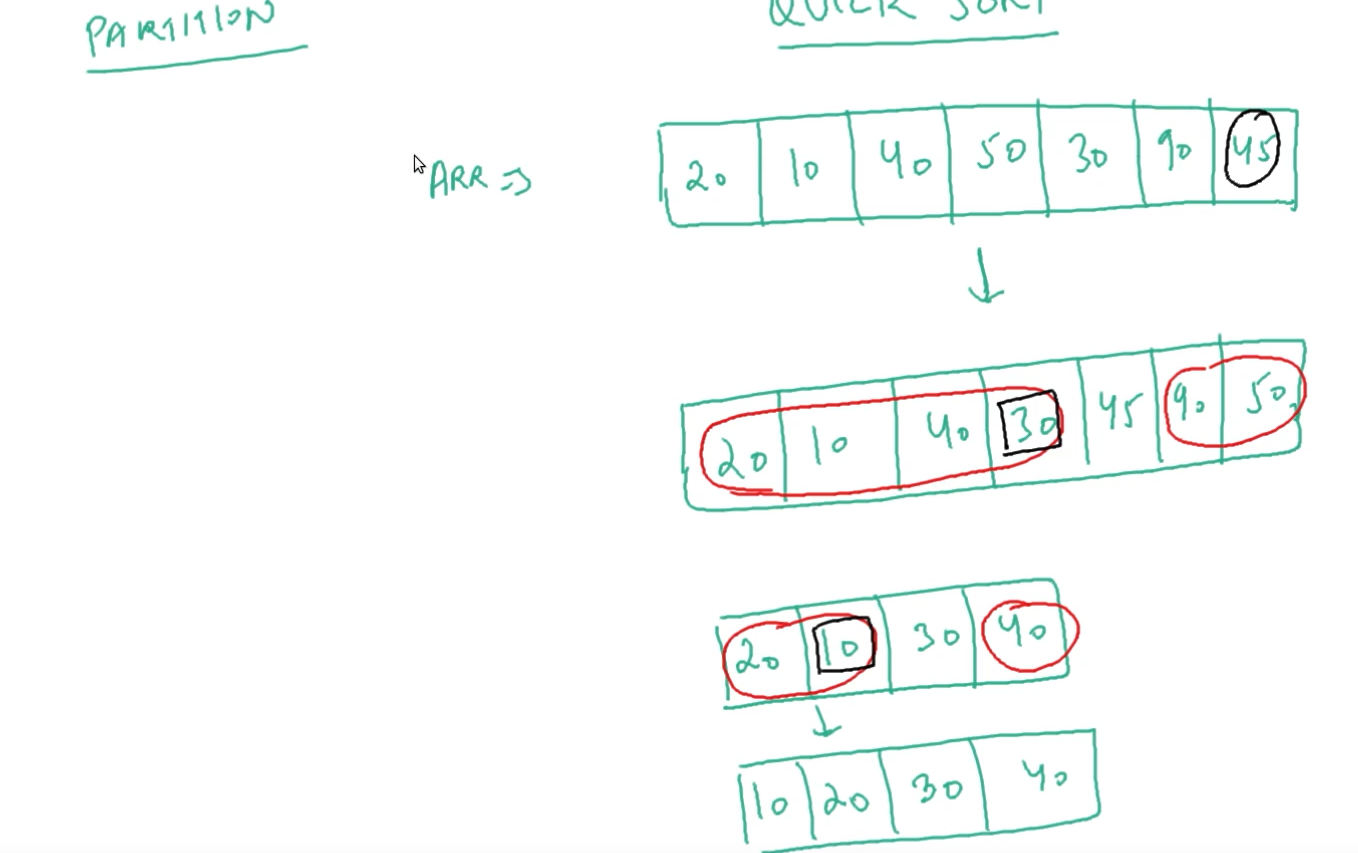 PARTITION
QUICK SORT
ARR ⇒
20 10 40 50 30 90 45
20 10 40 30 45 90 50
20 10 30 40
10 20 30 40